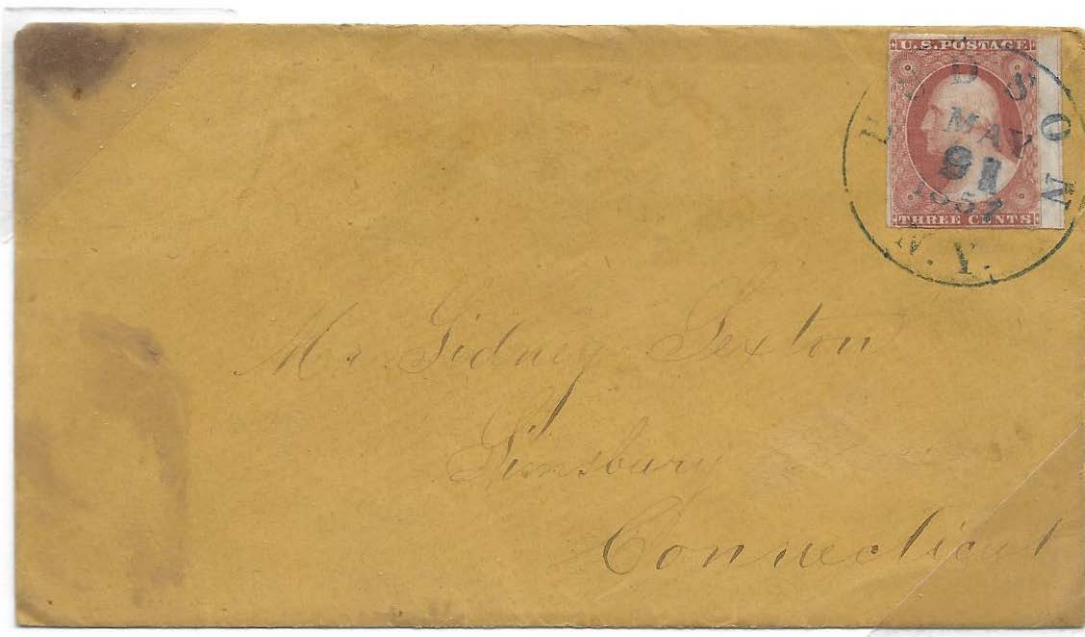 U.S. POSTAGE
THREE CENTS
HUDSON
MAY
1857
N.Y.
Mr Sidney Sexton
Simsbury
Connecticut